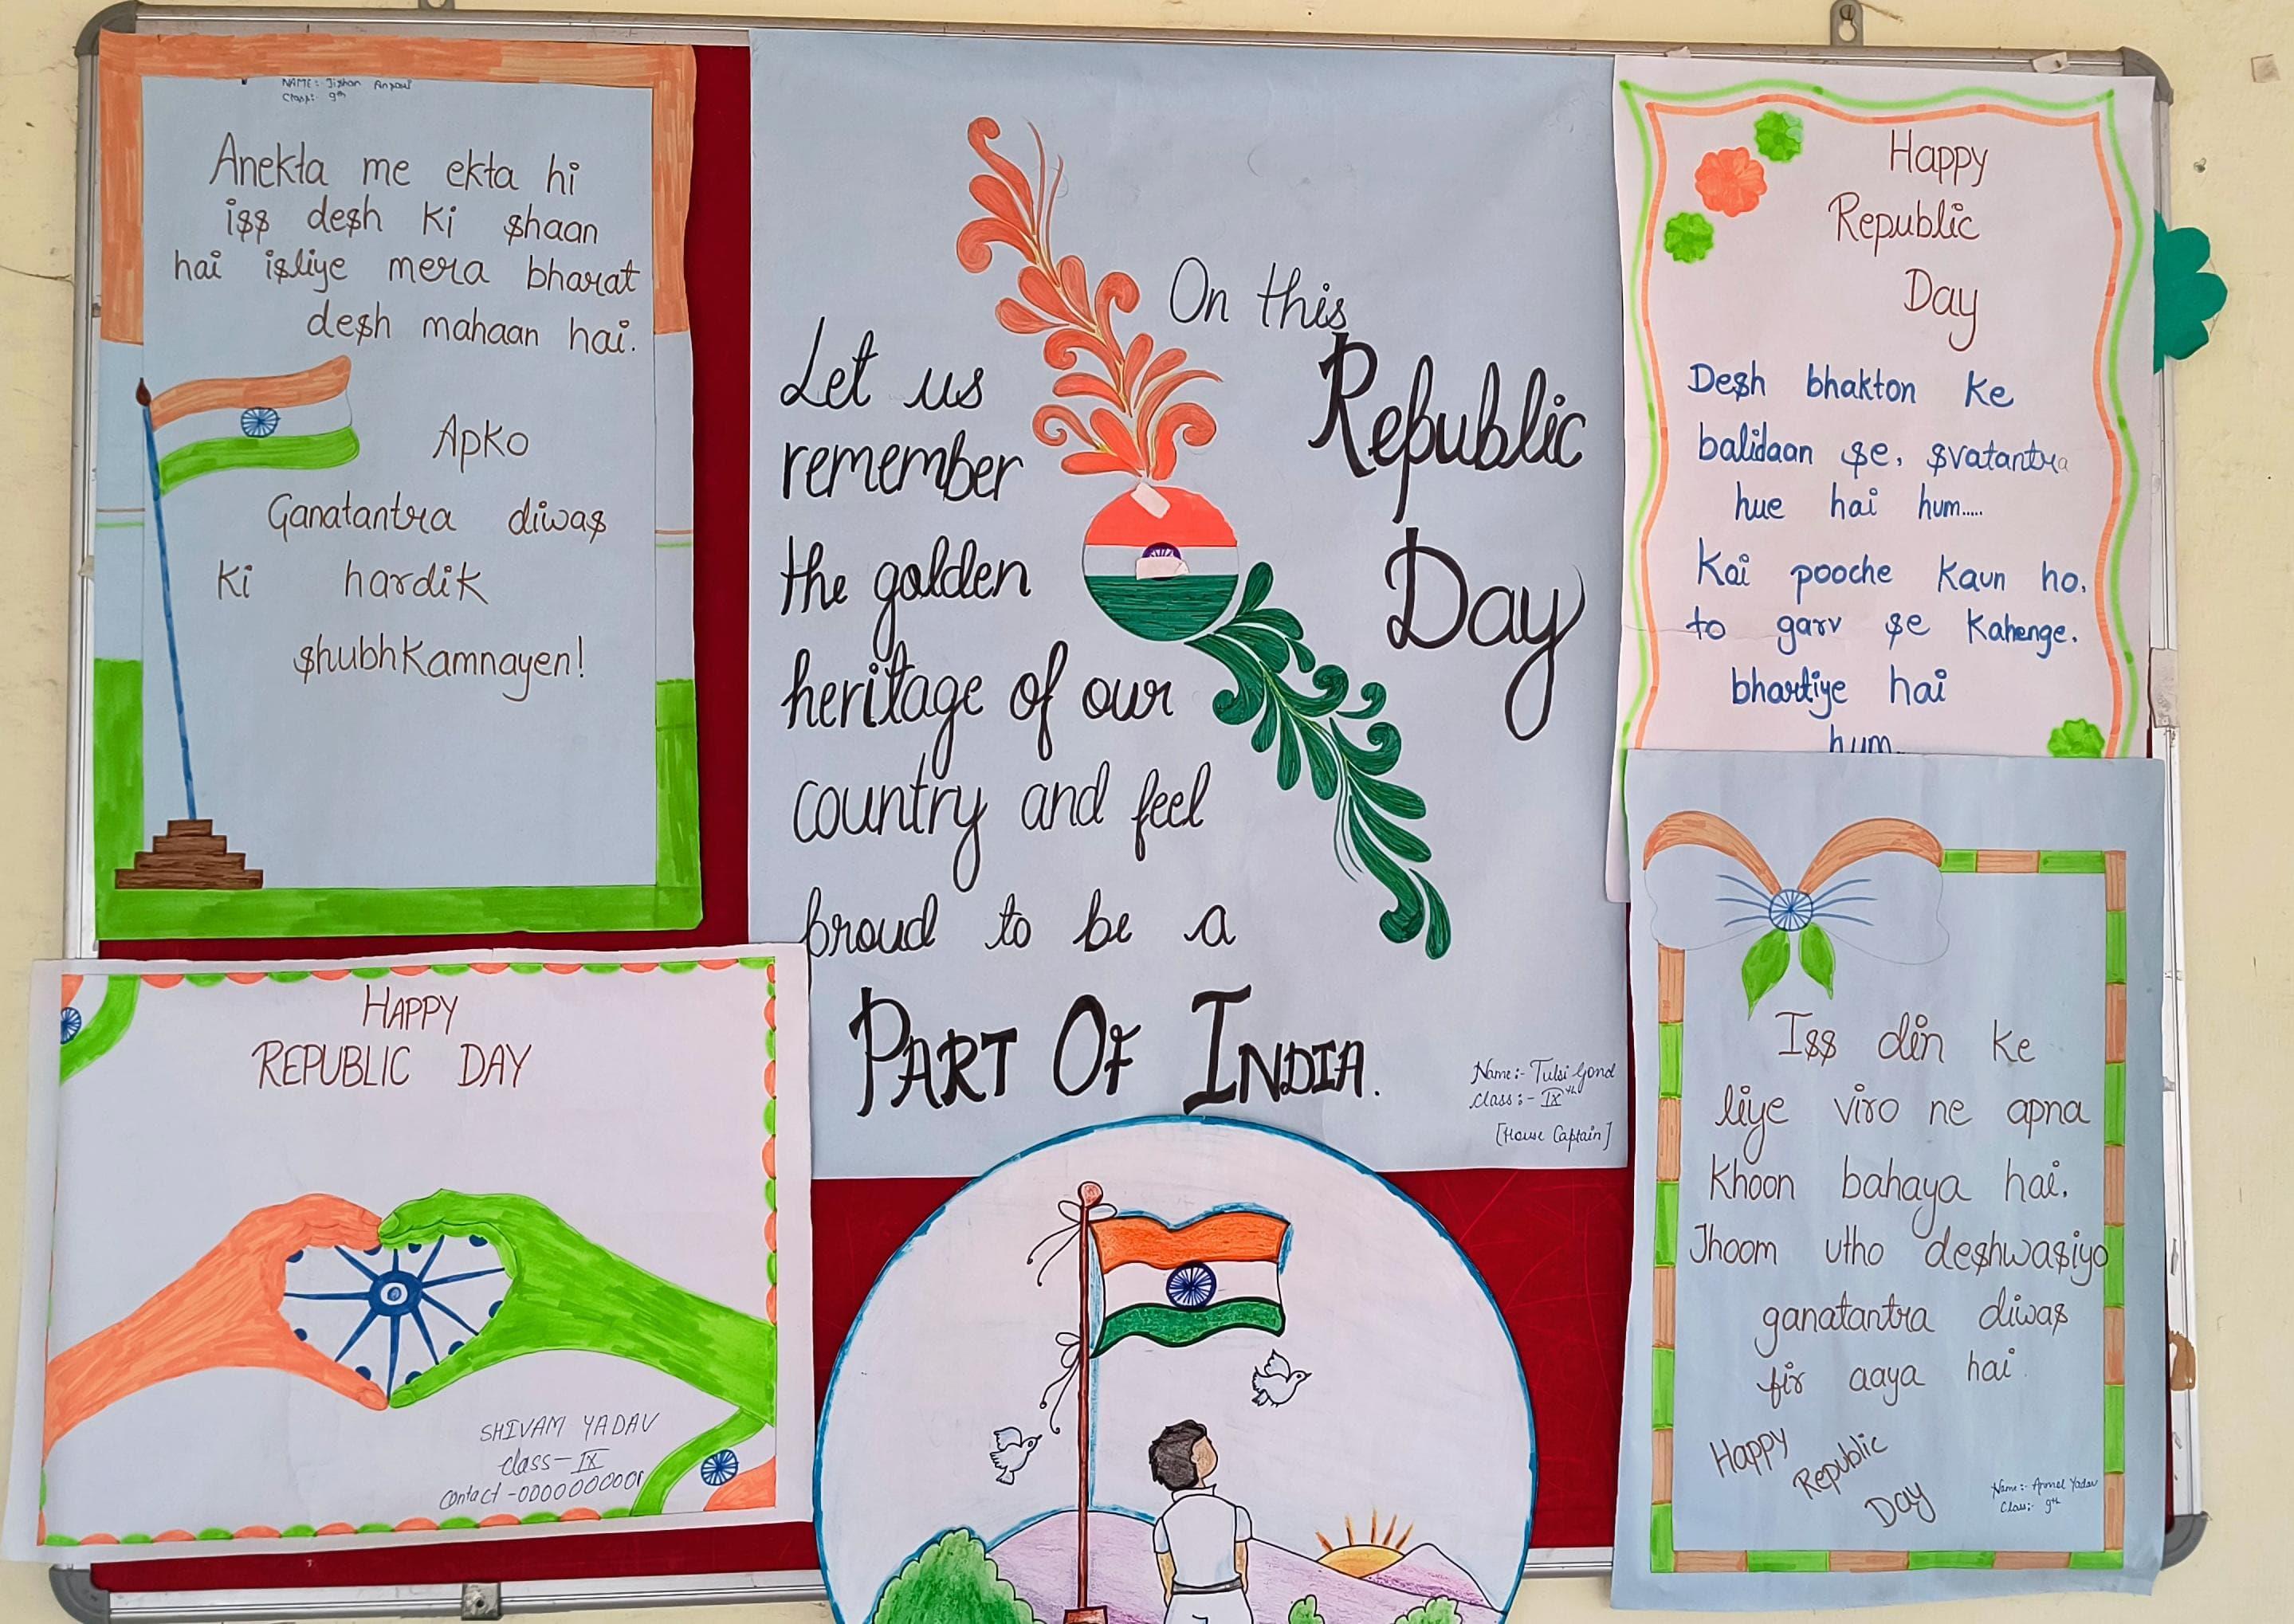 NAME: Jishan Ansari
Class: 9th
Anekta me ekta hi
iss desh ki shaan
hai isliye mera bharat
desh mahaan hai.
Apko
Ganatantra diwas
ki hardik
shubhkamnayen!
On this
Republic
Day
Let us
remember
the golden
heritage of our
country and feel
proud to be a
PART OF INDIA.
Name:- Tulsi Gond
Class:- IXth
[House Captain]
Happy
Republic
Day
Desh bhakton ke
balidaan se, svatantra
hue hai hum.....
Koi pooche kaun ho,
to garv se kahenge,
bhartiye hai
hum
HAPPY
REPUBLIC DAY
SHIVAM YADAV
class-IX
Contact -0000000001
Iss din ke
liye viro ne apna
khoon bahaya hai,
Jhoom utho deshwasiyo
ganatantra diwas
fir aaya hai.
Happy
Republic
Day
Name:- Anmol Yadav
Class:- 9th